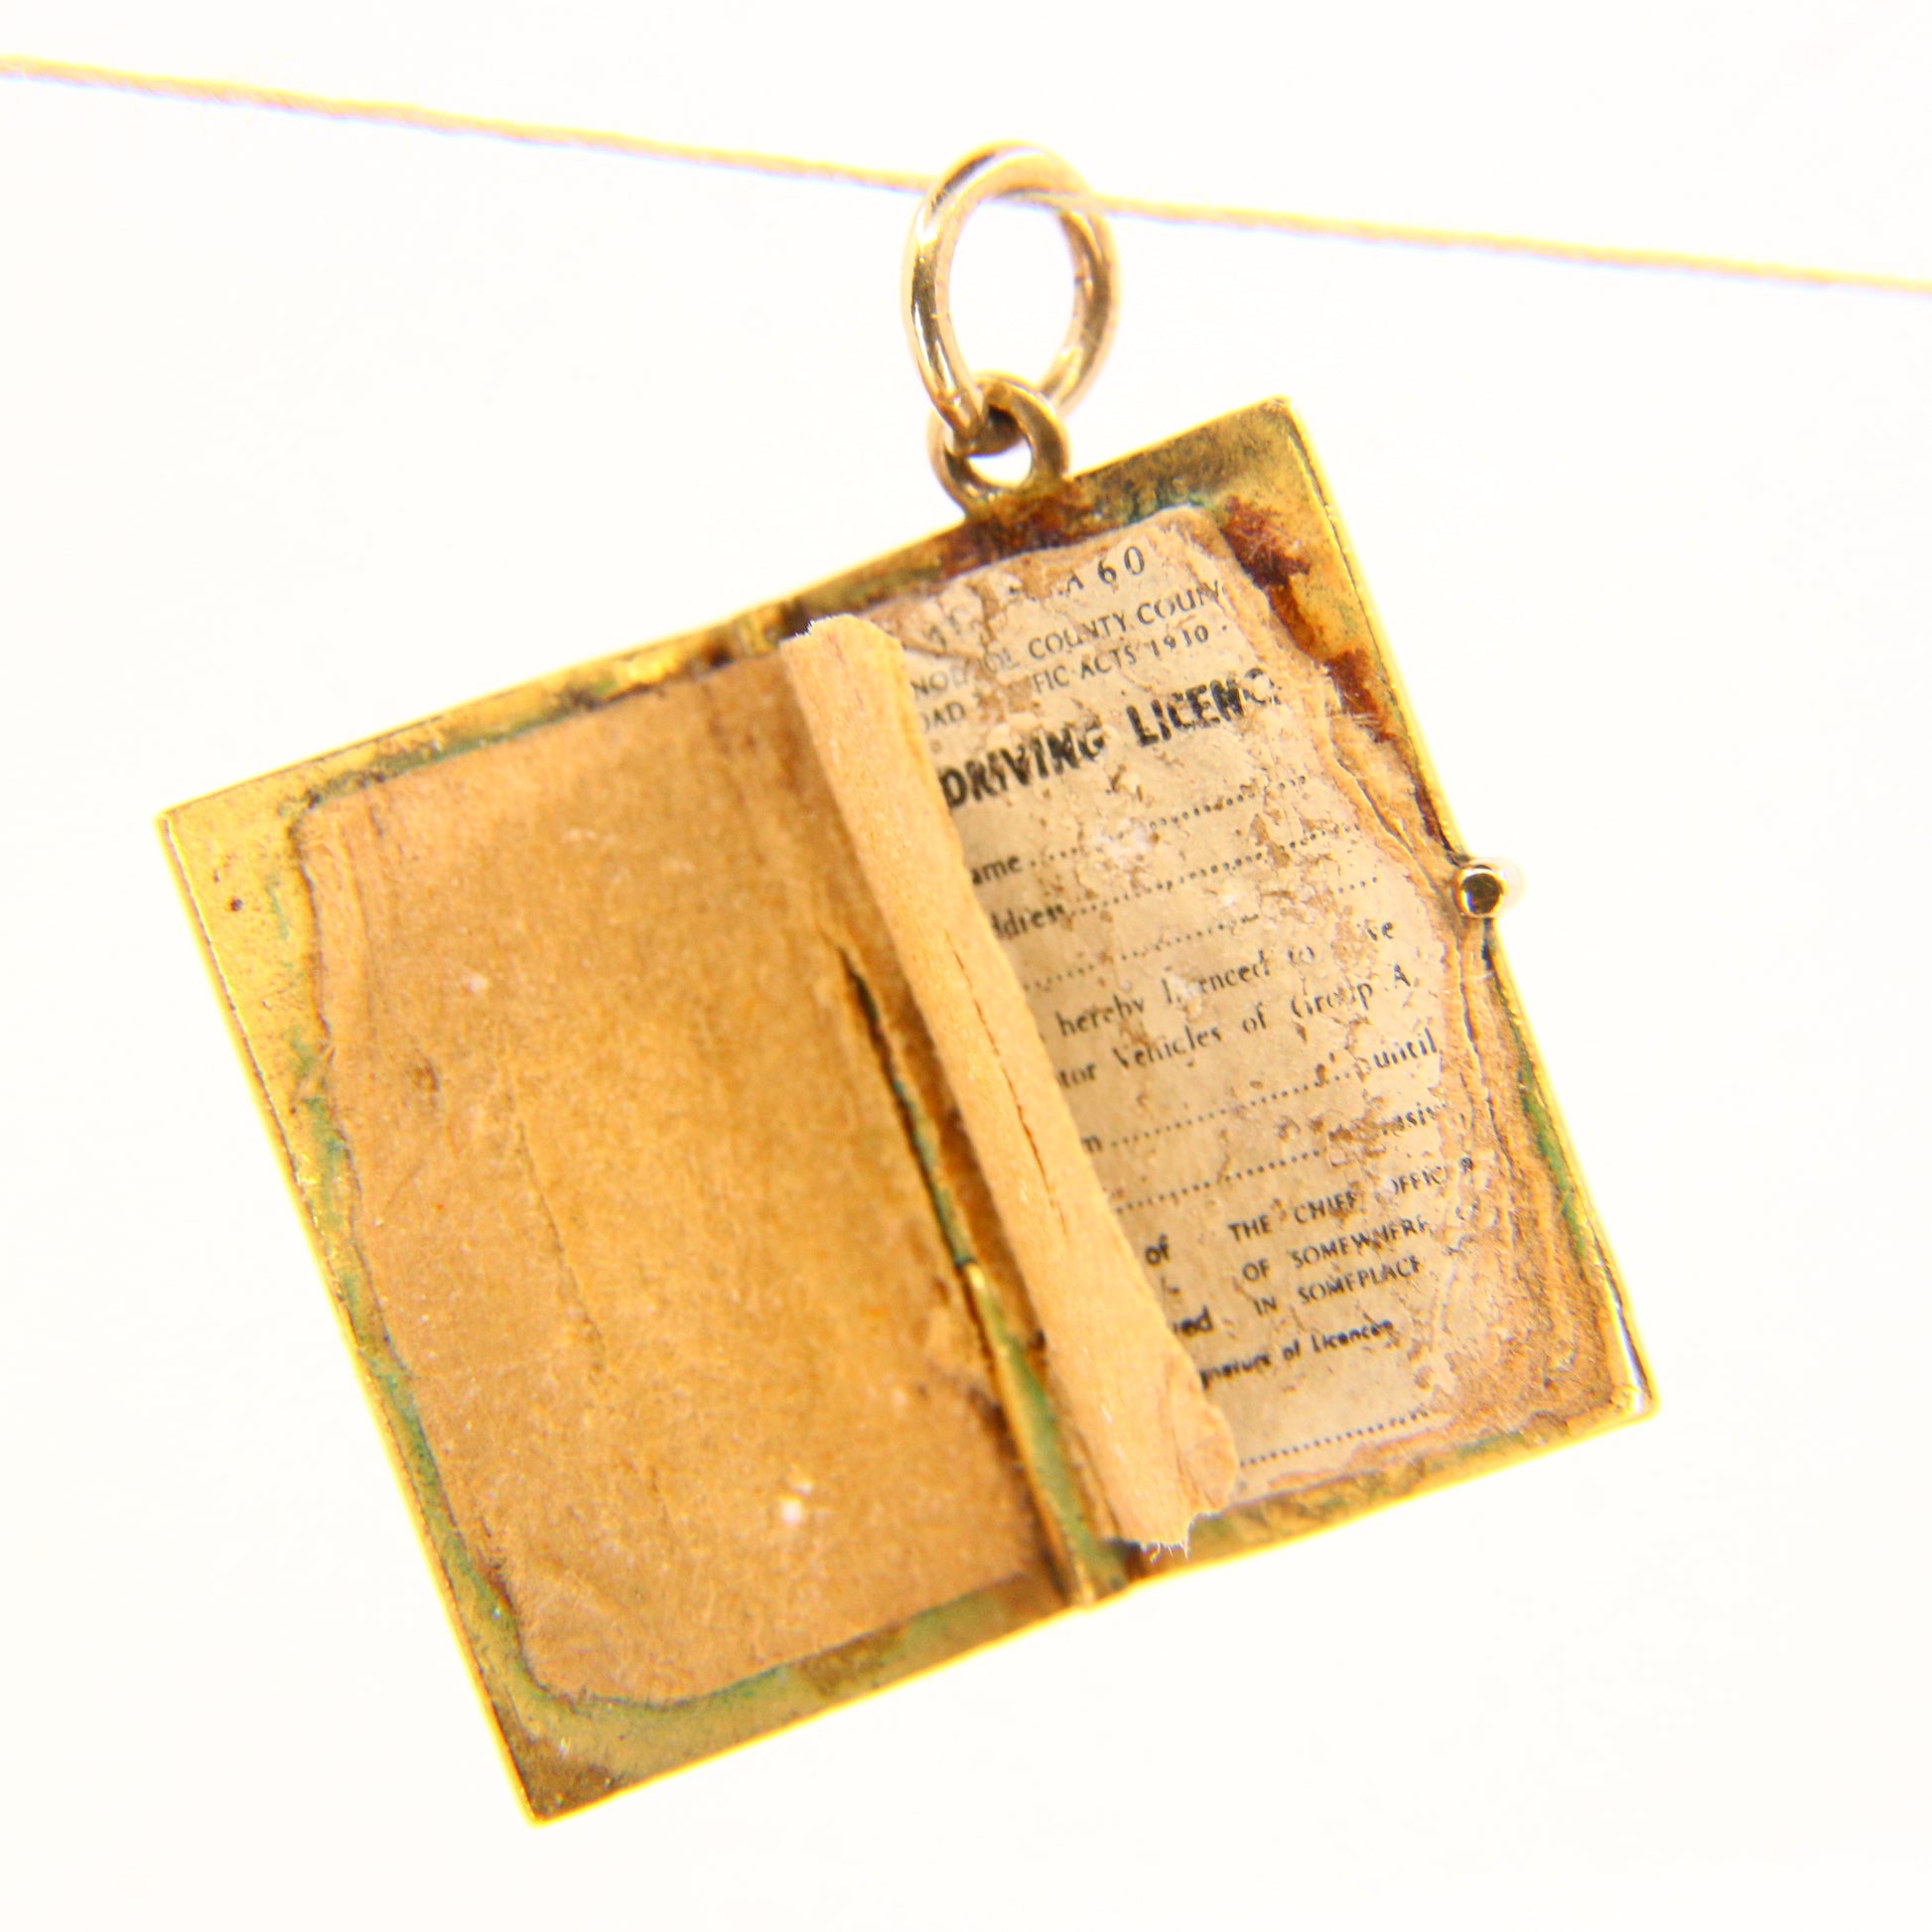 A 60
NO OL COUNTY COUN
OAD FIC ACTS 1930 -
DRIVING LICENC
ame
ddress
hereby licenced to ive
tor Vehicles of Group A
m until
of THE CHIEF OFFICER
OF SOMEWHERE
ed IN SOMEPLACE
gnature of Licencee